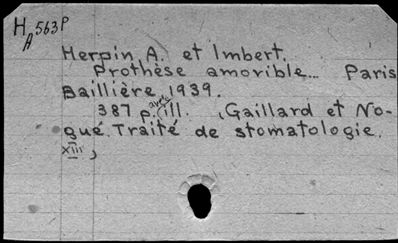 H 563P
A
Herpin A. et Imbert.
Prothèse amorible... Paris
Baillière 1939.
387 p. avec ill. (Gaillard et No-
gué. Traité de stomatologie.
XIII)